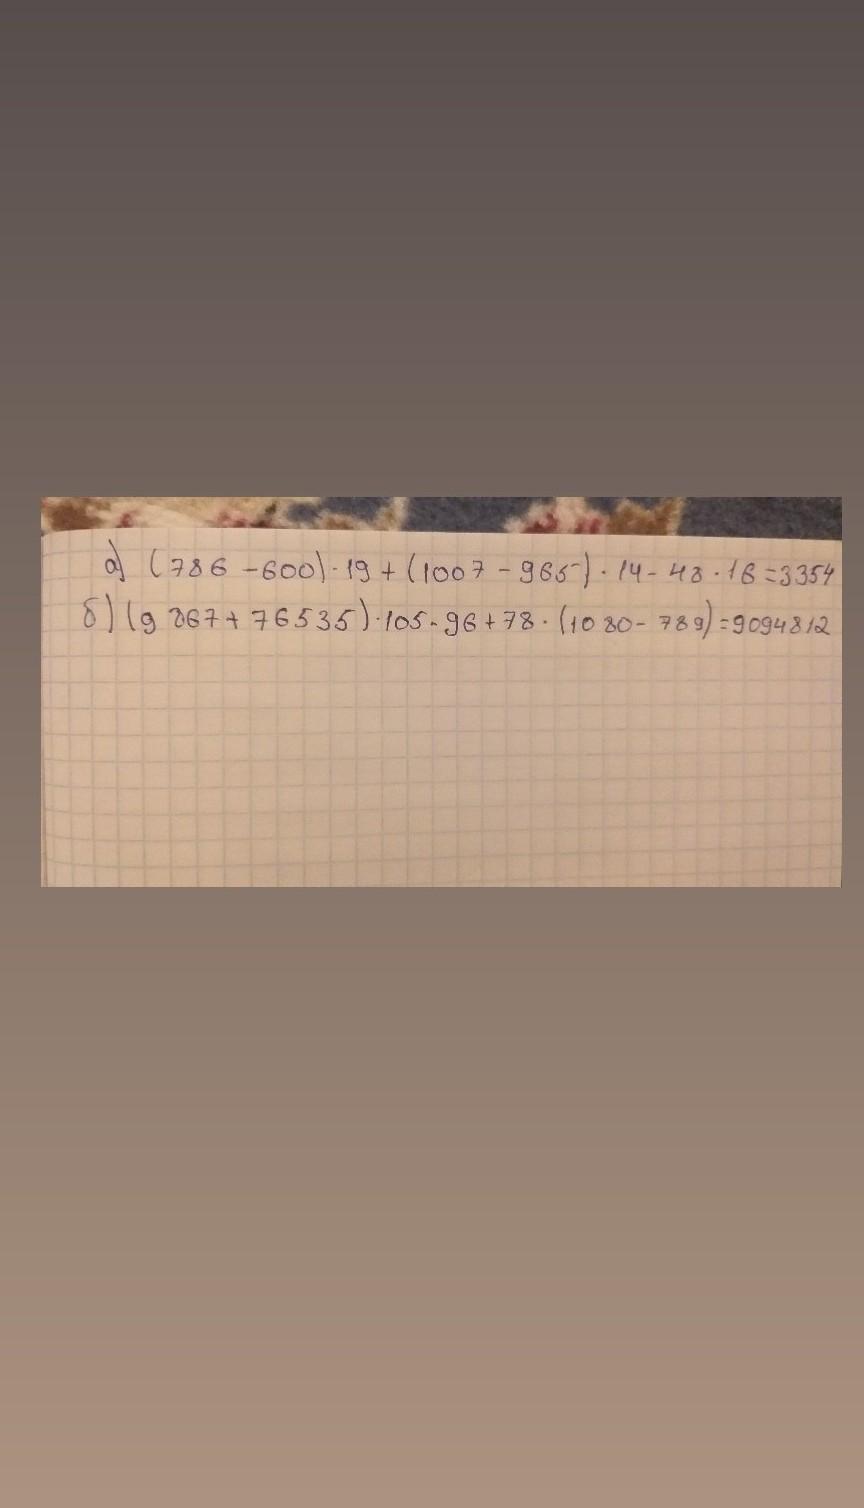 а) (786 - 600) · 19 + (1007 - 965) · 14 - 48 · 16 = 3354
б) (9 867 + 76535) · 105 - 96 + 78 · (1080 - 789) = 9094812